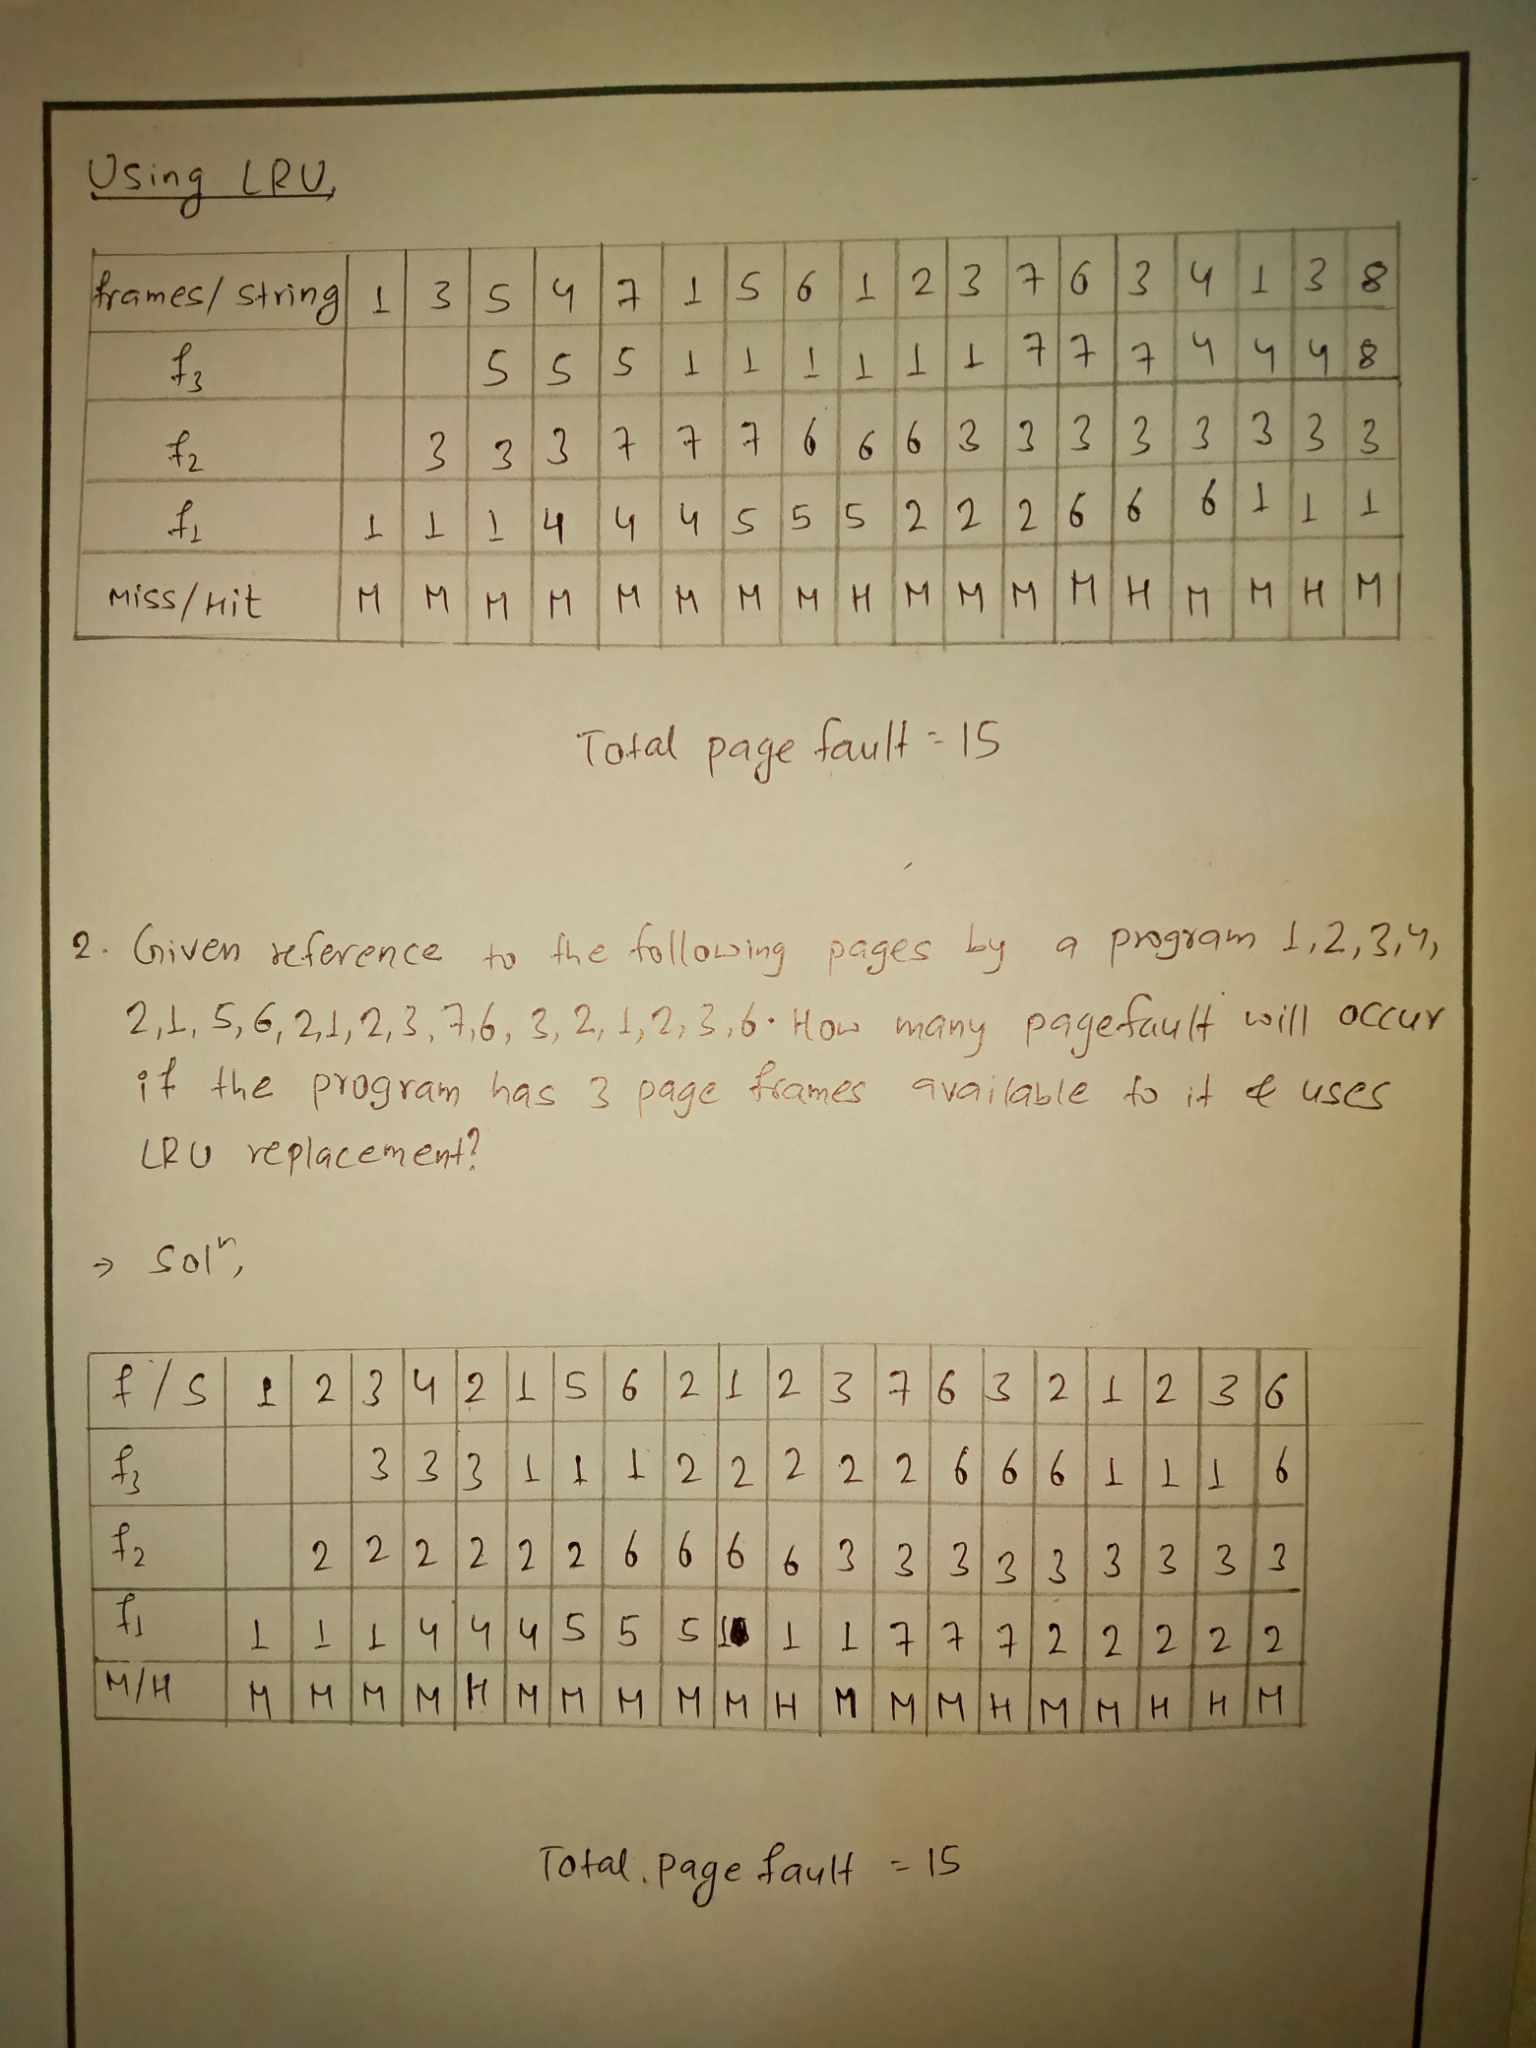 Using LRU,
frames/string 1 3 5 4 7 1 5 6 1 2 3 7 6 3 4 1 3 8
f3 5 5 5 1 1 1 1 1 1 7 7 7 4 4 4 8
f2 3 3 3 7 7 7 6 6 6 3 3 3 3 3 3 3 3
f1 1 1 1 4 4 4 5 5 5 2 2 2 6 6 6 1 1 1
Miss/Hit M M M M M M M M H M M M M H M M H M
Total page fault = 15
2. Given reference to the following pages by a program 1,2,3,4,
2,1,5,6,2,1,2,3,7,6,3,2,1,2,3,6. How many pagefault will occur
if the program has 3 page frames available to it & uses
LRU replacement?
→ Solⁿ,
f/s 1 2 3 4 2 1 5 6 2 1 2 3 7 6 3 2 1 2 3 6
f3 3 3 3 1 1 1 2 2 2 2 2 6 6 6 1 1 1 6
f2 2 2 2 2 2 2 6 6 6 6 3 3 3 3 3 3 3 3 3
f1 1 1 1 4 4 4 5 5 5 1 1 1 7 7 7 2 2 2 2 2
M/H M M M M H M M M M M H M M M H M M H H M
Total page fault = 15